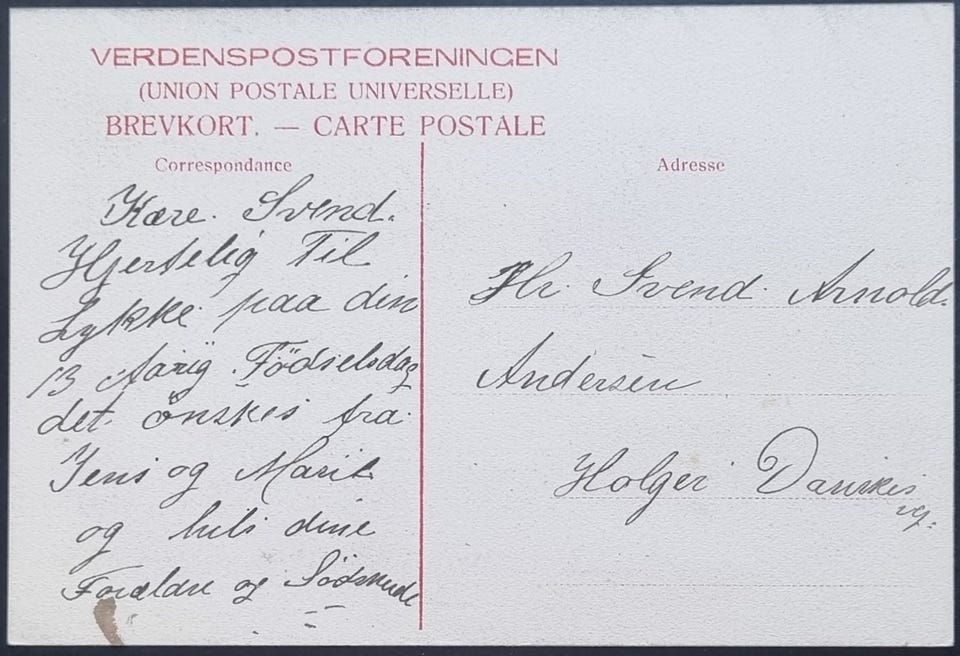 VERDENSPOSTFORENINGEN
(UNION POSTALE UNIVERSELLE)
BREVKORT. — CARTE POSTALE
Correspondance
Kære. Svend.
Hjertelig Til
Lykke paa din
13 Aarig Födselsdag
det ønskes fra
Jens og Marie
og hils dine
Forældre og Södskende
Adresse
Hr. Svend Arnold.
Andersen
Holger Danskes
vej.